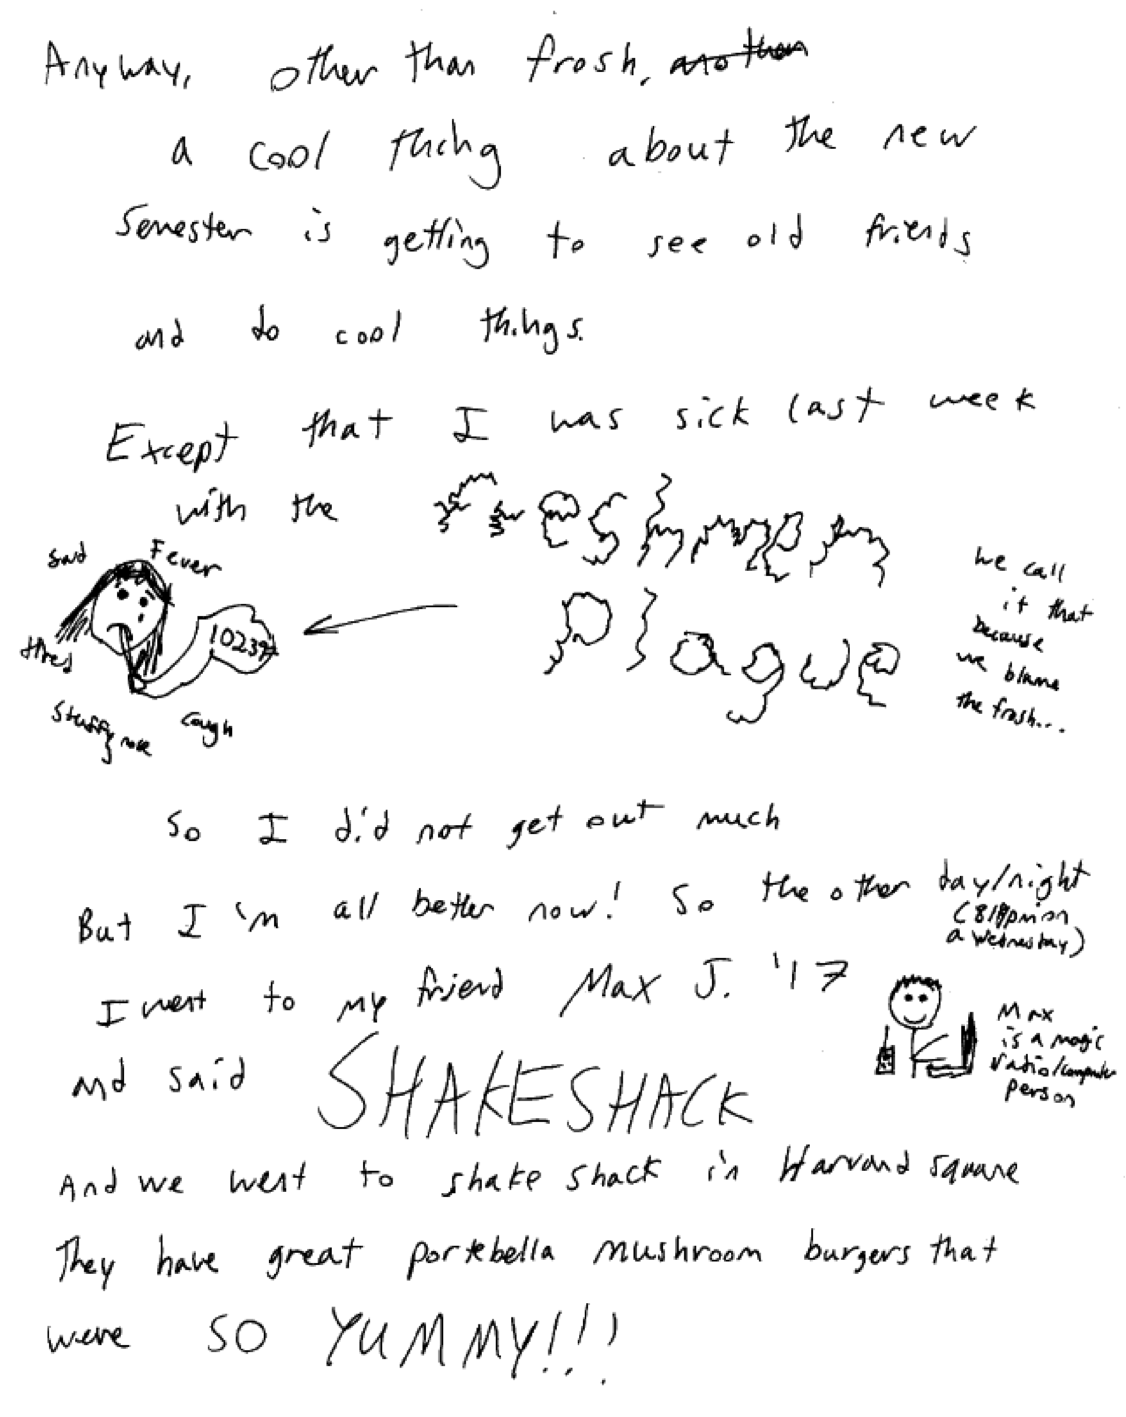 Anyway, other than frosh,
a cool thing about the new
Semester is getting to see old friends
and do cool things.
Except that I was sick last week
with the Freshmen
Plague
we call
it that
because
we blame
the frosh...
Sad
Fever
tired
Stuffy nose
Cough
So I did not get out much
But I'm all better now! So the other day/night
(818pm on
a Wednesday)
I went to my friend Max J. '17
and said SHAKESHACK
Max
is a magic
radio/computer
person
And we went to shake shack in Harvard square
They have great portebella mushroom burgers that
were SO YUMMY!!!